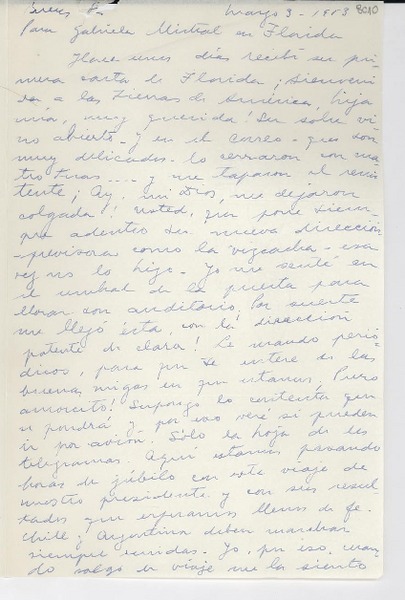 marzo 3 - 1953 8010
Para Gabriela Mistral en Florida
Hace unos días recibí su pri-
mera carta de Florida ¡Bienveni-
da a las Tierras de América, hija
mía, muy querida! Su sobre vi-
no abierto - y en el correo - que son
muy delicados - lo cerraron con cua-
tro tiras .... y me taparon el remi-
tente; ¡Ay, mi Dios, me dejaron
colgada! Usted, que pone siem-
pre adentro su nueva dirección
- previsora como la vizcacha - esa
vez no lo hizo - Yo me senté en
el umbral de la puerta para
llorar con auditorio. Por suerte
me llegó ésta, con la dirección
patente de clara! Le mando perió-
dicos, para que se entere de las
buenas migas en que estamos. Puro
amorcito! Supongo lo contenta que
se pondrá y por eso veré si pueden
ir por avión. Sólo la hoja de los
telegramas. Aquí estamos pasando
horas de júbilo con este viaje de
nuestro presidente y con sus resul-
tados que esperamos llenos de fe.
Chile y Argentina deben marchar
siempre unidas. Yo, por eso, cuan-
do salgo en viaje me la siento